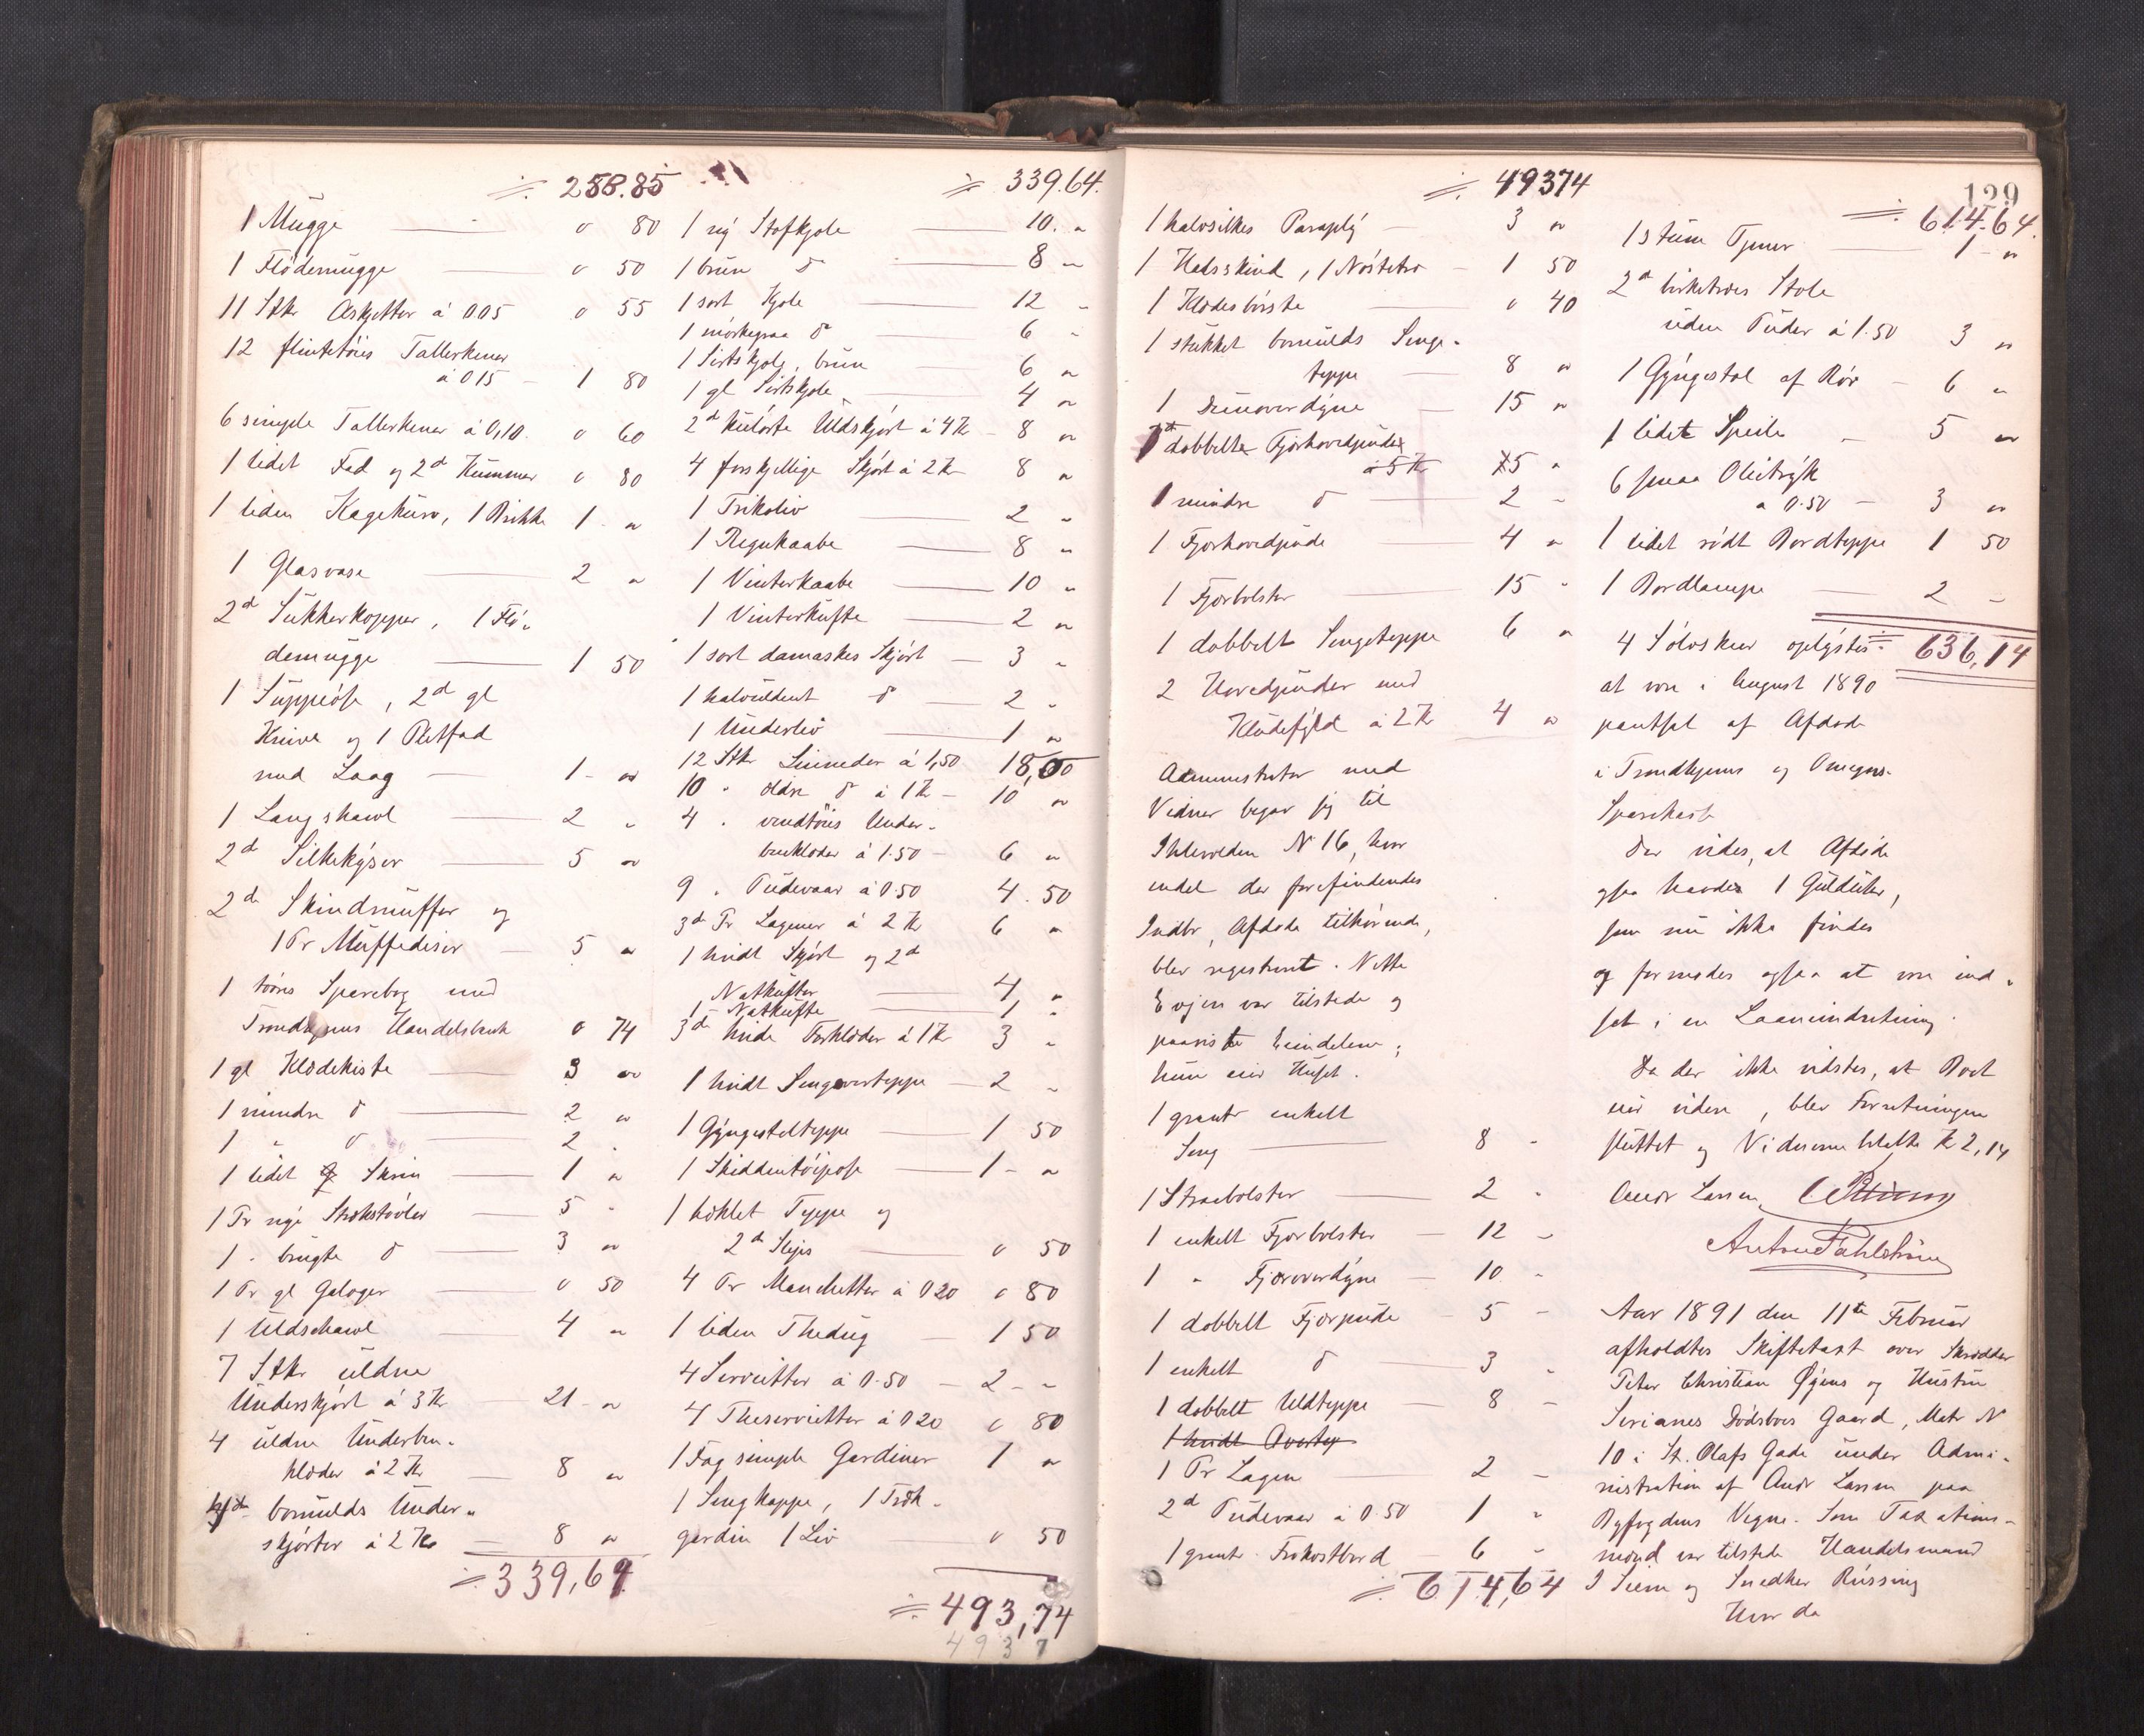 258.85
1 Mugge " 80
1 Flödemugge " 50
11 Stkr Askjetter à 005 " 55
12 flintetöies Tallerkener
à 015 1 80
6 simple Tallerkener à 0,10. " 60
1 lidet Fad og 2de Kummer " 80
1 liden Kagekurv, 1 Brikke 1 "
1 Glasvase 2 "
2de Sukkerkopper, 1 Flö-
demugge 1 50
1 Suppeöse, 2de gl
Knive og 1 Fad
med Laag 1 "
1 Langshawl 2 "
2de Silkekyser 5 "
2de Skindmuffer og
1 Pr Muffediser 5 "
1 Sparebog med
Trondhjems Handelsbank " 74
1 gl Klædekiste 3 "
1 mindre do 2 "
1 " do 2 "
1 lidet Skrin 1 "
1 Pr nye Strikstövler 5 "
1 " brugte do 3 "
1 Pr gl Galoger " 50
1 Uldschawl 4 "
7 Stkr uldne
Underskjört à 3 Kr 21 "
4 uldne Underben-
klæder à 2 Kr 8 "
4de bomulds Under-
skjörter à 2 Kr 8 "
339,64
339.64.
1 ny Stofkjole 10. "
1 brun do 8 "
1 sort Kjole 12 "
1 mörkegraa do 6 "
1 Sirtskjole, brun 6 "
1 gl Sirtskjole 4 "
2de kulörte Uldskjört à 4 Kr 8 "
4 forskjellige Skjört à 2 Kr 8 "
1 Trikoliv 2 "
1 Regnkaabe 8 "
1 Vinterkaabe 10 "
1 Vinterkufte 2 "
1 sort damaskes Skjört 3 "
1 halvuldent do 2 "
1 Underliv 1 "
12 Stkr Linneder à 1,50 18,00
10 " ældre do à 1 Kr 10 "
4 " Under-
benklæder à 1.50 6 "
9 " Pudevaar à 0.50 4.50
3de Pr Lagener à 2 Kr 6 "
1 hvidt Skjört og 2de
Natkufter 4 "
1 Natkufte 1 "
3de hvide Forklæder à 1 Kr 3 "
1 hvidt Sengoverteppe 2 "
1 Gyngestolteppe 1 50
1 Skiddentöipose 1 "
1 hæklet Teppe og
2de Slips " 50
4 Pr Manchetter à 020 " 80
1 liden Thedug 1 50
4 Servietter à 0.50 2 "
4 Theservietter à 020 " 80
1 Fag simple Gardiner 1 "
1 Sengkappe, 1 Træk-
gardin 1 Liv " 50
493,74
4937
129
49374
1 halvsilkes Paraply 3 "
1 Halsskind, 1 Nöstetræ 1 50
1 Klædesbörste " 40
1 stukket bomulds Senge-
teppe 8 "
1 Dunoverdyne 15 "
1 dobbelt Fjærhovedpude
à 5 Kr 5 "
1 mindre do 2 "
1 Fjærhovedpude 4 "
1 Fjærbolster 15 "
1 dobbelt Sengeteppe 6 "
2 Hovedpuder med
Kludefyld à 2 Kr 4 "
Administrator med
Vidner begav sig til
Ihlevolden No 16, hvor
endel der forefindendes
Indbo, Afdöde tilhörende,
blev registreret. N
Evjen var tilstede og
paaviste Eiendelene;
hun eier Huset.
1 grant enkelt
Seng 8 "
1 Straabolster 2 "
1 enkelt Fjærbolster 12 "
1 " Fjæroverdyne 10 "
1 dobbelt Fjærpude 5 "
1 enkelt do 3 "
1 dobbelt Uldteppe 8 "
1 hvidt Overtep
1 Pr Lagen 2 "
2de Pudevaar à 0.50 1 "
1 grant Frokostbord 6 "
614,64
614.64.
1 stum Tjener 1 "
2de birketræes Stole
uden Puder à 1.50 3 "
1 Gyngestol af Rör 6 "
1 lidet Speile 5 "
6 smaa Olietryk
à 0.50 3 "
1 lidet rödt Bordteppe 1 50
1 Bordlampe 2 "
636,14
4 Sölvskeer oplystes
at være i August 1890
pantsat af Afdöde
i Trondhjems og Omegns
Sparekasse
Der vides, at Afdöde
ogsaa havde 1 Guldur,
som nu ikke findes
og formodes ogsaa at være ind-
sat i en Laaneindretning.
Da der ikke vidstes, at Boet
eier videre, blev Forretningen
sluttet og Viderne betalte Kr 2,14
Andr Larsen
Anton Pahlström
Aar 1891 den 11te Februar
afholdtes Skiftetaxt over Skrædder
Peter Christian Öyens og Hustru
Serianes Dödsboes Gaard, Matr No
10 i St. Olafs Gade under Admi-
nistration af Andr Larsen paa
Byfogdens Vegne. Som Taxations-
mænd var tilstede Handelsmand
J Siem og Snedker Rüssing
Hvor da